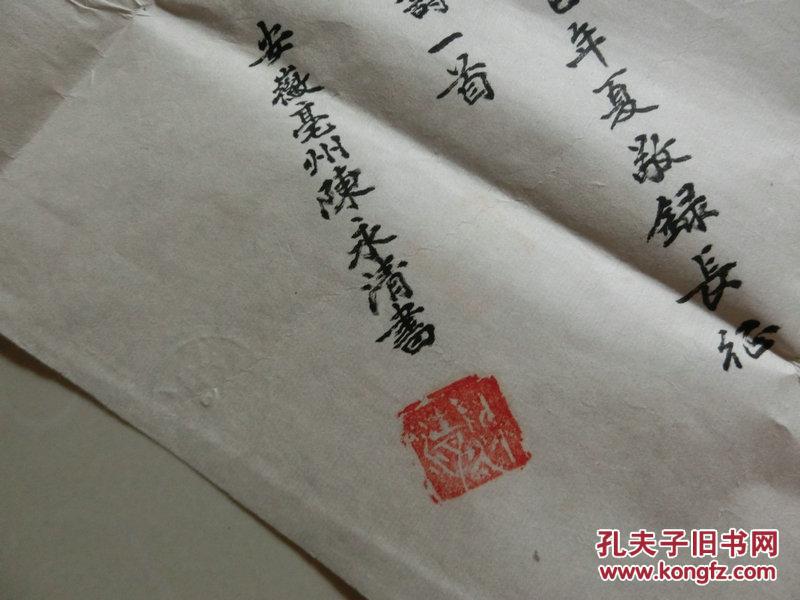 年夏敬録長征
詩一首
安徽亳州陳永清書
孔夫子旧书网
www.kongfz.com